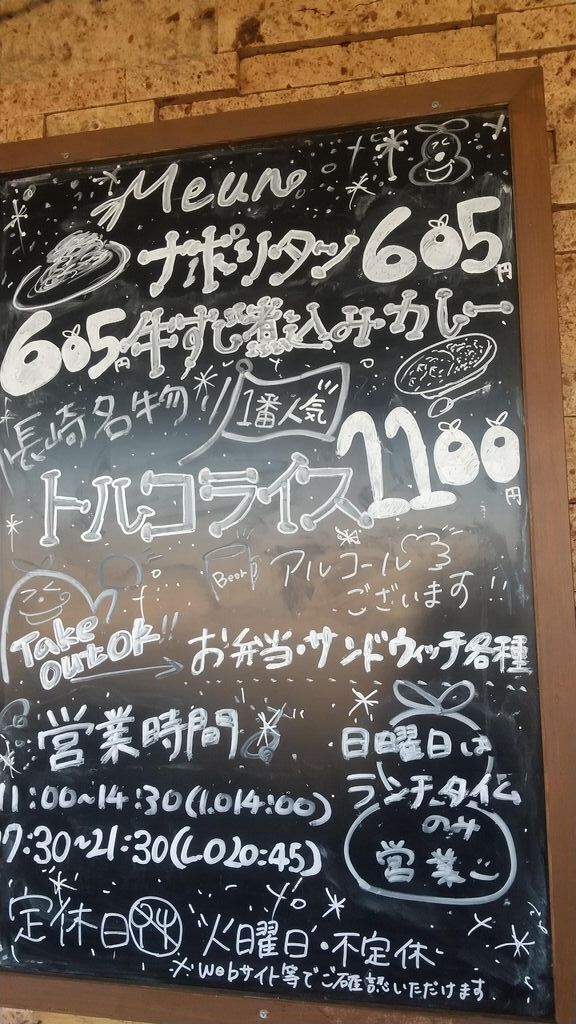 Meun
ナポリタン 605円
605円 牛すじ煮込みカレー
長崎名物 1番人気
トルコライス 1100円
Beer アルコール
ございます!!
Take
out Ok!! → お弁当・サンドウィッチ各種
営業時間
11:00~14:30(LO14:00)
17:30~21:30(LO20:45)
日曜日は
ランチタイム
のみ
営業
定休日 火曜日・不定休
※Webサイト等でご確認いただけます